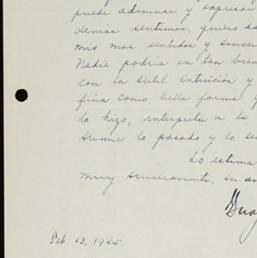 puede admirar y expresar
devisa sentimos, quiero da
mis mas sentidas y sincer
Nadie podría en tan brev
con la sutil intuición y
fina como bella forma y
lo hizo, interpretar a la
sumir lo pasado y lo
Lo estima
muy sinceramente, su am
Feb. 13, 1945.